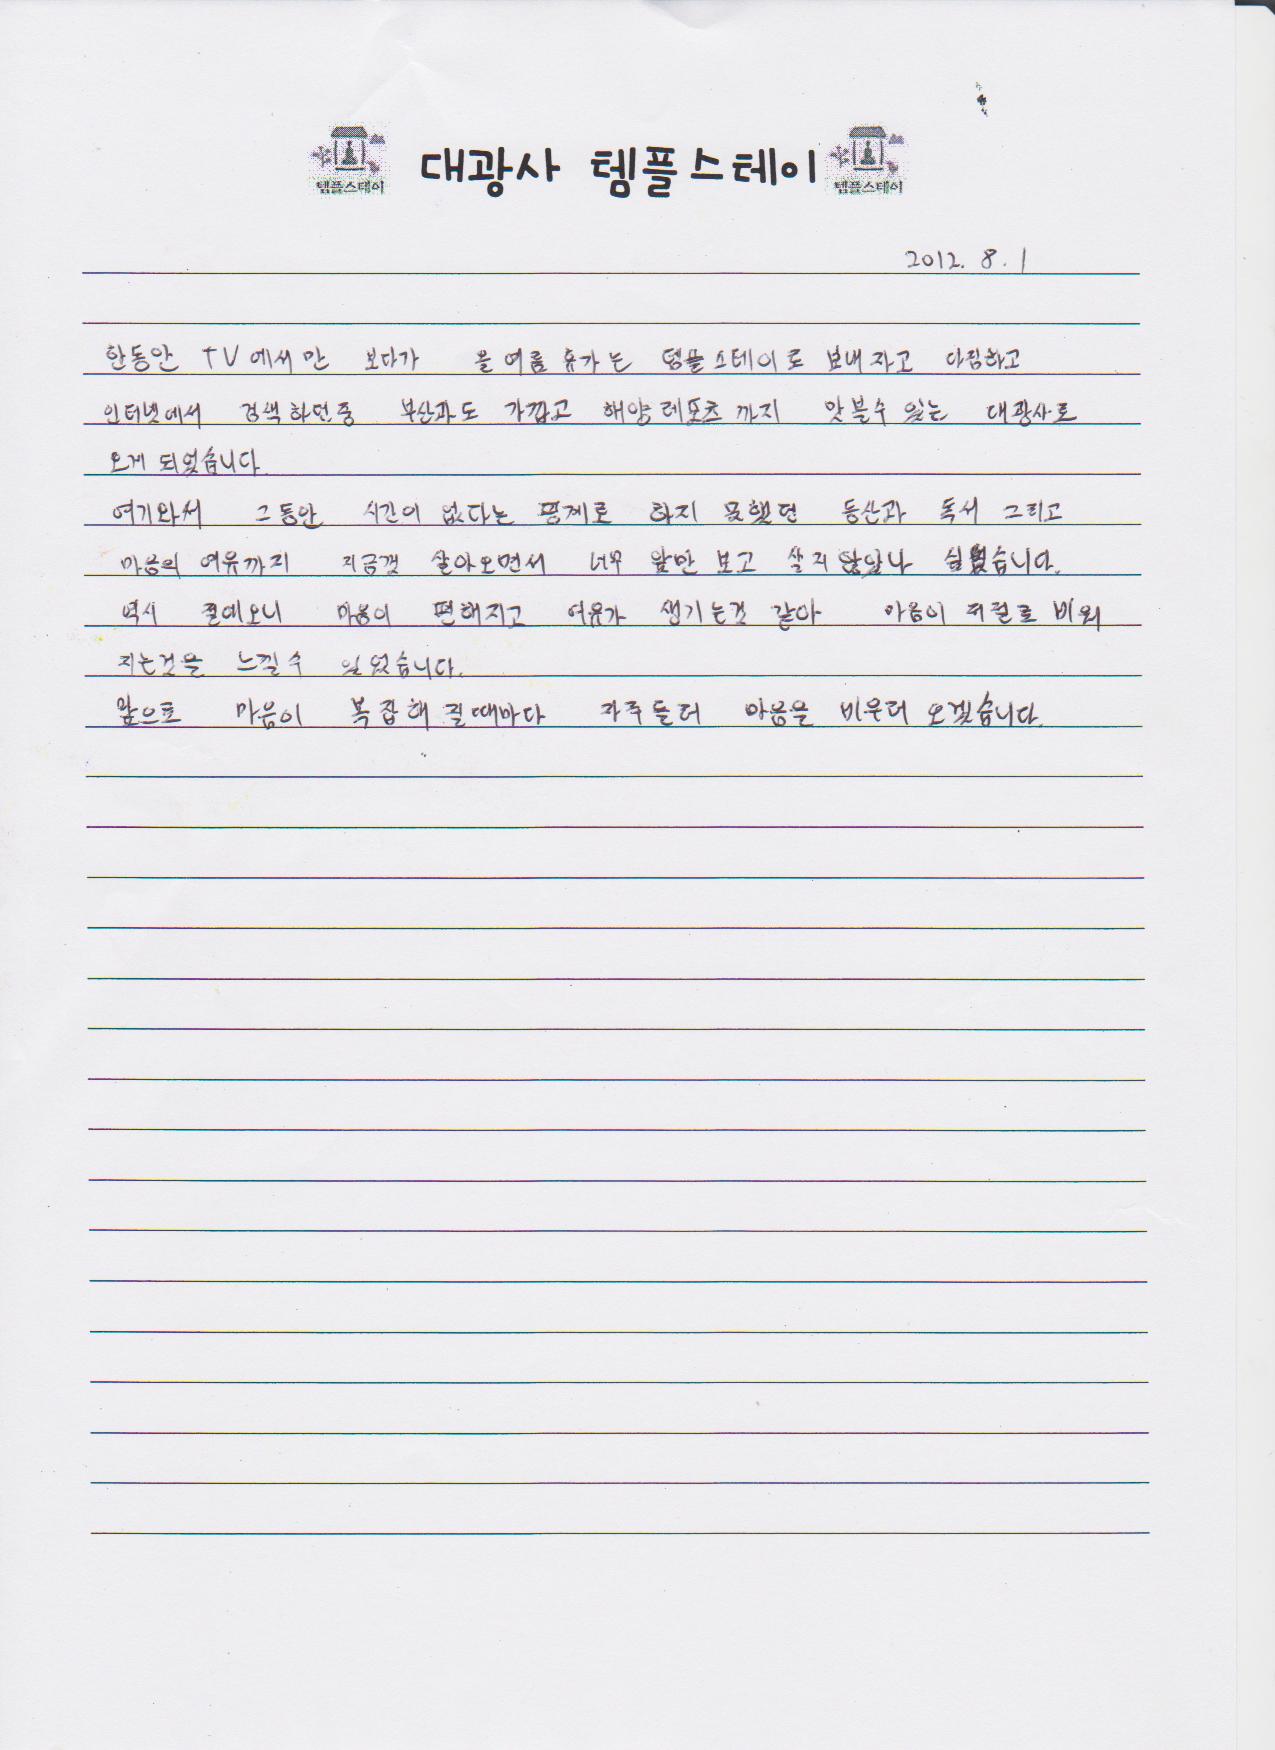 대광사 템플스테이
템플스테이
템플스테이
2012. 8. 1
한동안 TV에서만 보다가 올 여름 휴가는 템플스테이로 보내자고 다짐하고
인터넷에서 검색하던중 부산과도 가깝고 해양레포츠까지 맛볼수 있는 대광사로
오게 되었습니다.
여기와서 그동안 시간이 없다는 핑계로 하지 못했던 등산과 독서 그리고
마음의 여유까지 지금껏 살아오면서 너무 앞만 보고 살지않았나 싶었습니다.
역시 절에오니 마음이 편해지고 여유가 생기는것 같아 마음이 저절로 비워
지는것을 느낄수 있었습니다.
앞으로 마음이 복잡해 질때마다 자주들러 마음을 비우러 오겠습니다.